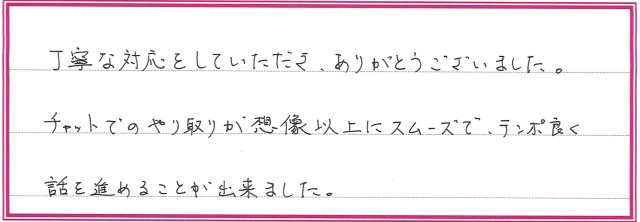 丁寧な対応をしていただき、ありがとうございました。
チャットでのやり取りが想像以上にスムーズで、テンポ良く
話を進めることが出来ました。